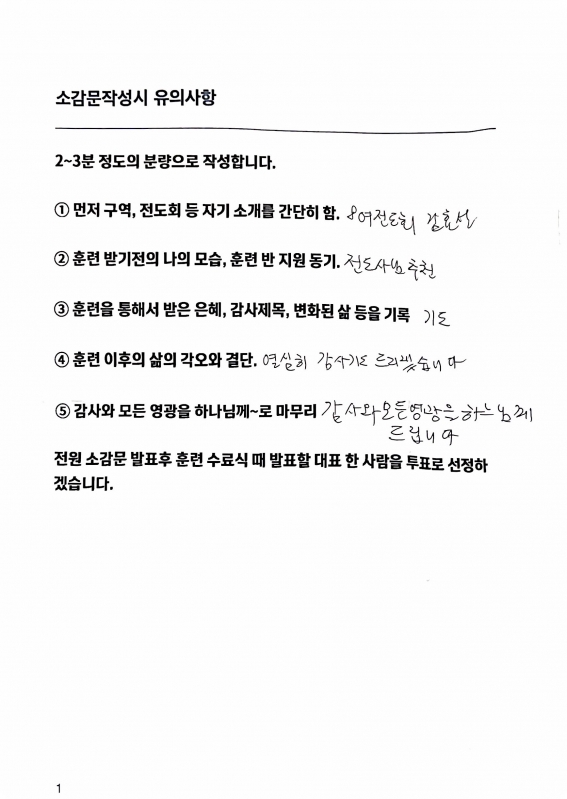 소감문작성시 유의사항
2~3분 정도의 분량으로 작성합니다.
① 먼저 구역, 전도회 등 자기 소개를 간단히 함. 8여전도회
② 훈련 받기전의 나의 모습, 훈련 반 지원 동기. 전도사님 추천
③ 훈련을 통해서 받은 은혜, 감사제목, 변화된 삶 등을 기록 기도
④ 훈련 이후의 삶의 각오와 결단. 열심히 감사기도 드리겠습니다
⑤ 감사와 모든 영광을 하나님께~로 마무리 감사와 모든 영광을 하느님께
드립니다
전원 소감문 발표후 훈련 수료식 때 발표할 대표 한 사람을 투표로 선정하
겠습니다.
1